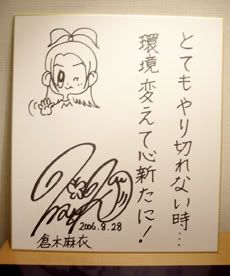 とてもやり切れない時…
環境変えて心新たに！
2006.8.28
倉木麻衣